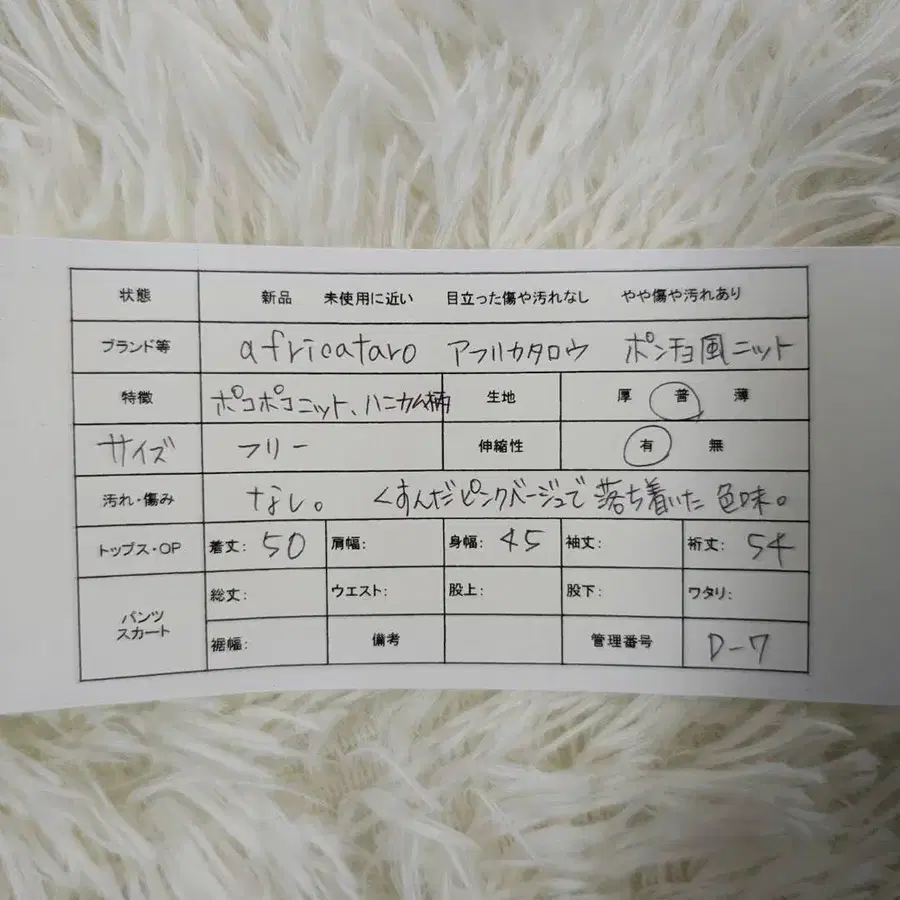 状態 新品 未使用に近い 目立った傷や汚れなし やや傷や汚れあり
ブランド等 africataro アフリカタロウ ポンチョ風ニット
特徴 ポコポコニット、ハニカム柄 生地 厚 普 薄
サイズ フリー 伸縮性 有 無
汚れ・傷み なし。 くすんだピンクベージュで落ち着いた色味。
トップス・OP 着丈: 50 肩幅: 身幅: 45 袖丈: 裄丈: 54
パンツ スカート 総丈: ウエスト: 股上: 股下: ワタリ:
裾幅: 備考 管理番号 D-7